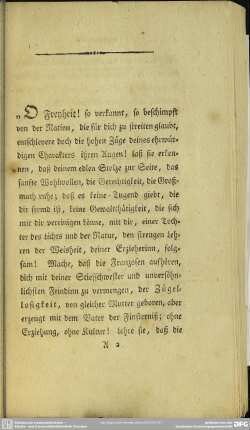 „O Freyheit! so verkannt, so beschimpft
von der Nation, die für dich zu streiten glaubt,
entschleyere doch die hohen Züge deines ehrwür-
digen Charakters ihren Augen! laß sie erken-
nen, daß deinem edlen Stolze zur Seite, das
sanfte Wohlwollen, die Gerechtigkeit, die Groß-
muth ruhe; daß es keine Tugend giebt, die
dir fremd ist, keine Gewaltthätigkeit, die sich
mit dir vereinigen könne, mit dir, einer Toch-
ter des Lichts und der Natur, den strengen Leh-
ren der Weisheit, deiner Erzieherinn, folg-
sam! Mache, daß die Franzosen aufhören,
dich mit deiner Stiefschwester und unversöhn-
lichsten Feindinn zu vermengen, der Zügel-
losigkeit, von gleicher Mutter geboren, aber
erzeugt mit dem Vater der Finsterniß; ohne
Erziehung, ohne Kultur! lehre sie, daß die
A 2